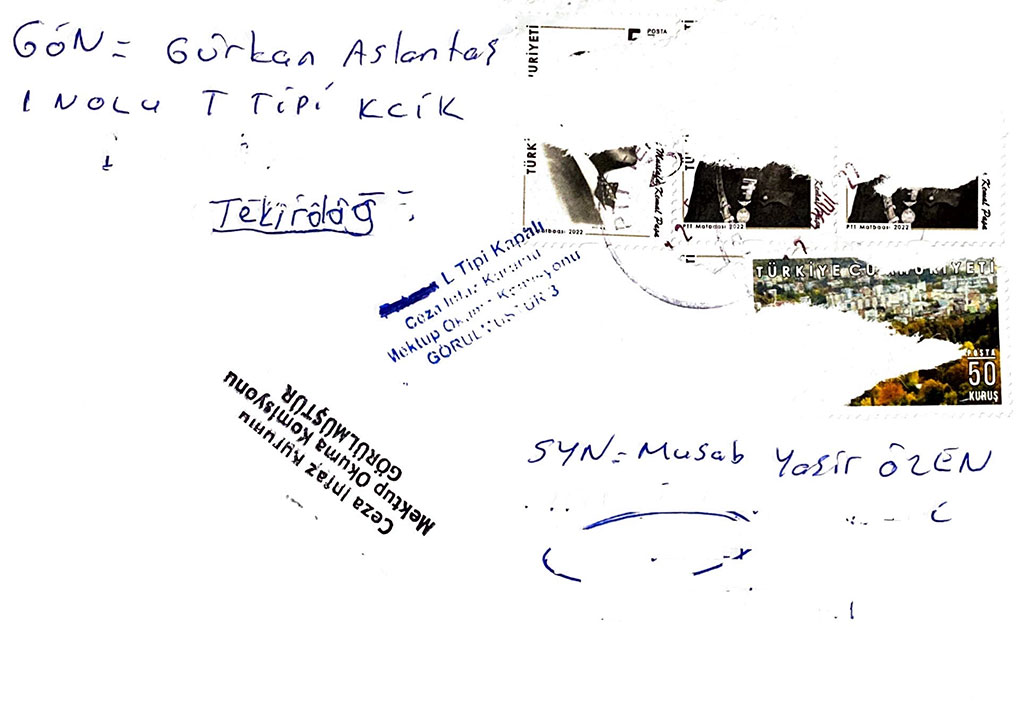 GÖN= Gürkan Aslantaş
1 NOLU T TİPİ KCİK
Tekirdağ
URİYETİ
POSTA
TÜRK
Mustafa Kemal Paşa
PTT Matbaası 2022
Kemal Paşa
PTT Matbaası 2022
TÜRKİYE CUMHURİYETİ
POSTA
50
KURUŞ
L Tipi Kapalı
Ceza İnfaz Kurumu
Mektup Okuma Komisyonu
GÖRÜLMÜŞTÜR 3
Ceza İnfaz Kurumu
Mektup Okuma Komisyonu
GÖRÜLMÜŞTÜR
SYN= Musab Yasir ÖZEN